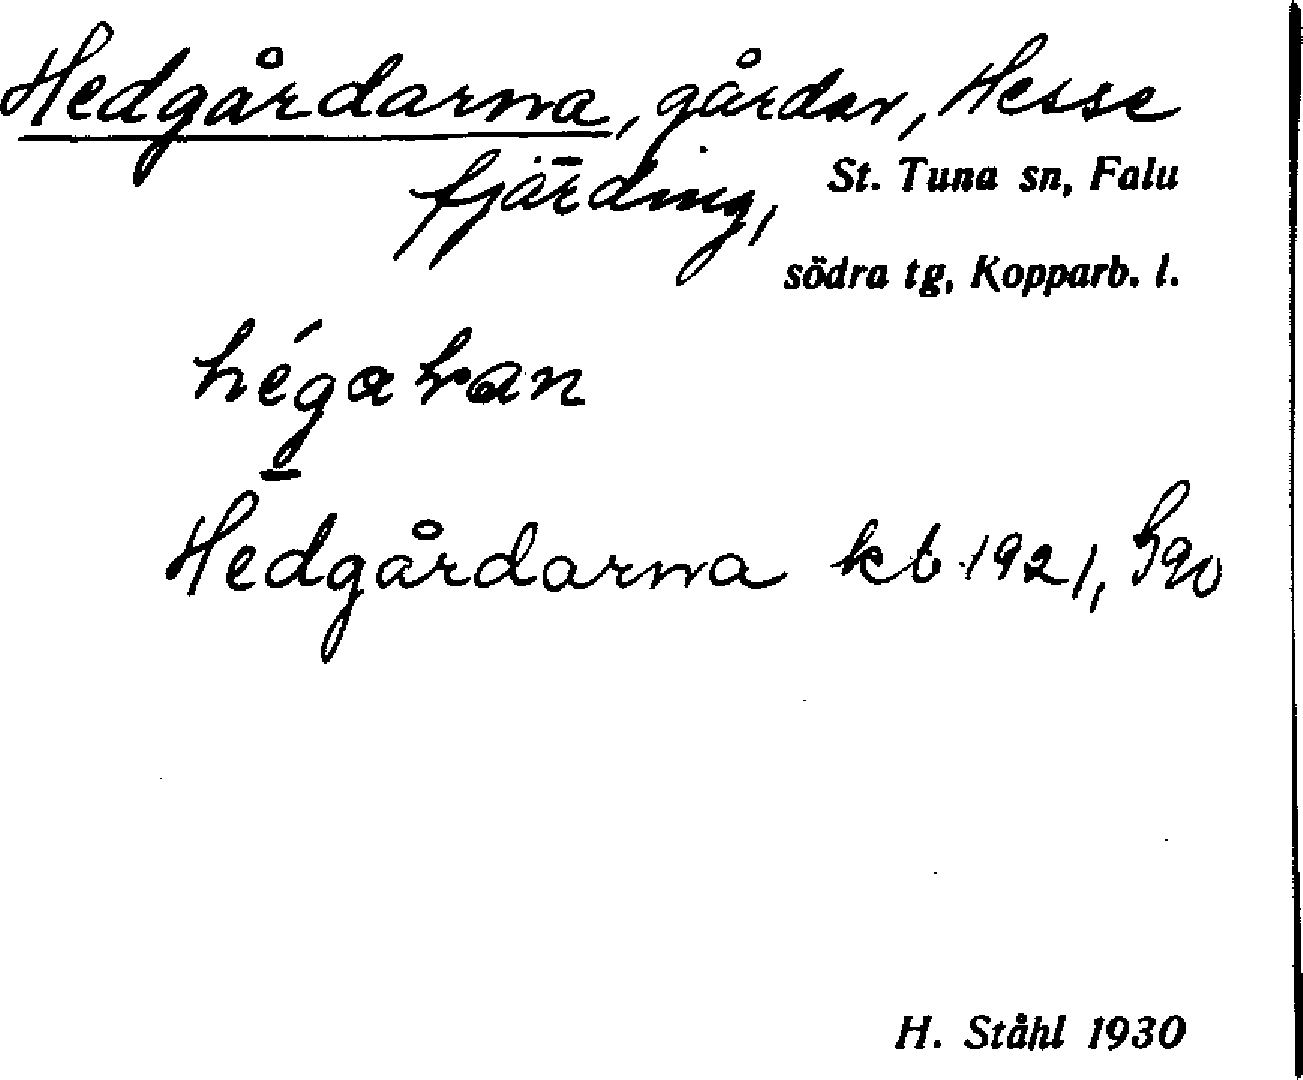 Hedgårdarna, gårdar, Hesse
fjärding, St. Tuna sn, Falu
södra tg, Kopparb. l.
Hedgårdarna kb 1921, 590
H. Ståhl 1930